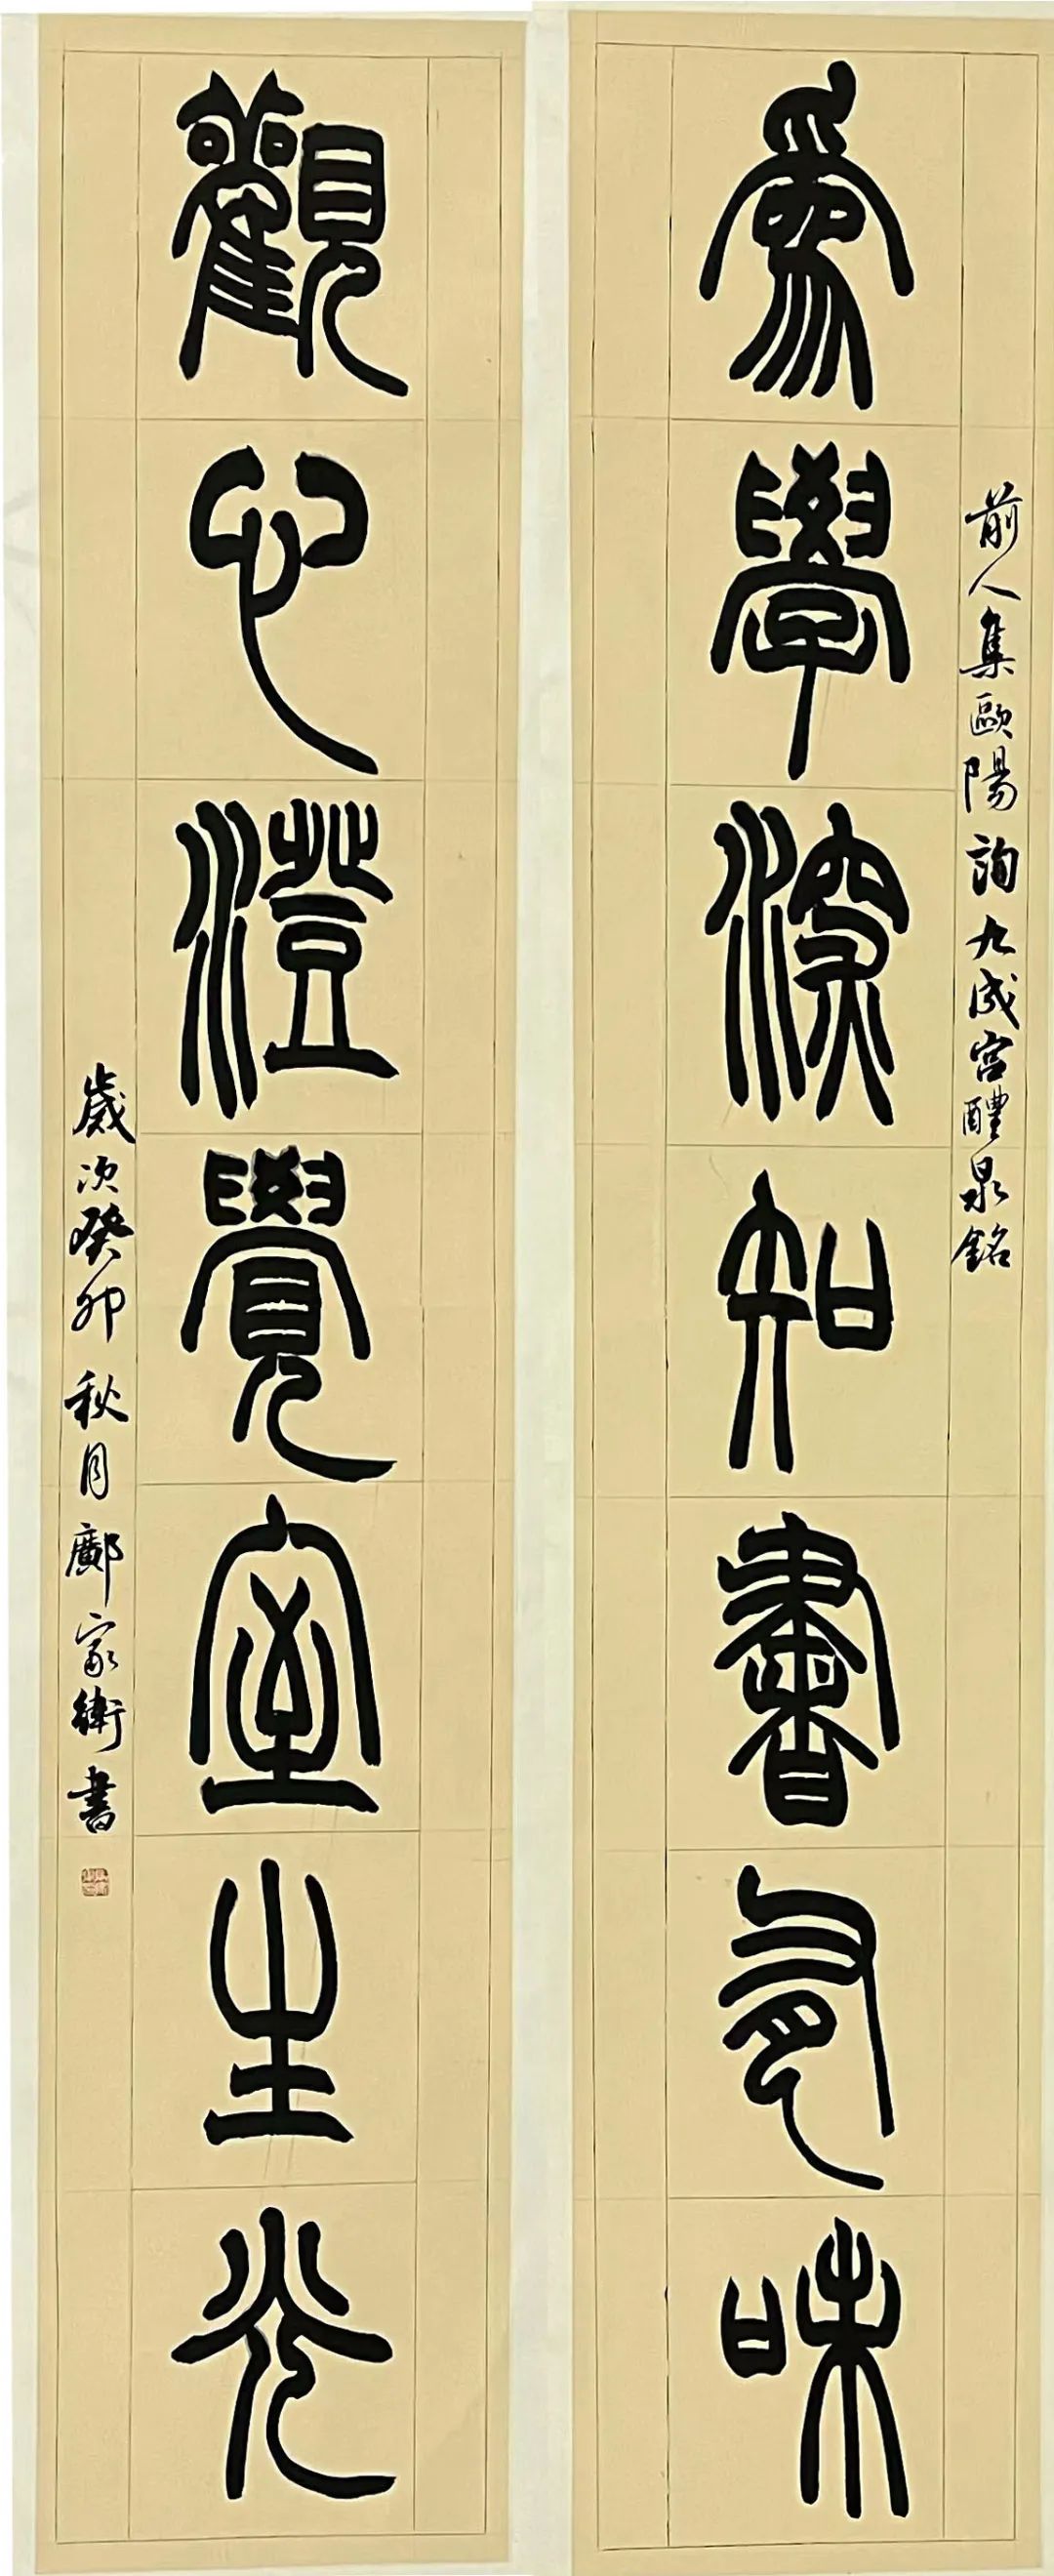 為學深知書有味
前人集歐陽詢九成宮醴泉銘
觀心澄覺室生光
歲次癸卯秋月鄺家衛書